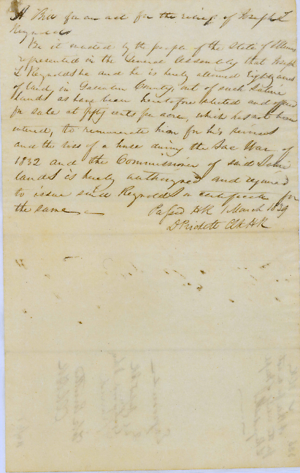 A Bill for an act for the relief of Joseph L
Reynolds
Be it enacted by the people of the State of Illinois
represented in the General Assembly that Joseph
L Reynolds be and he is hereby allowed Eighty acres
of land, in Gallatin County, out of such Saline
lands as have been heretofore selected and offered
for sale at fifty cents per acre, which has not been
entered, to remunerate him for his services
and the loss of a horse during the Sac War of
1832 and the Commissioner of said Saline
lands is hereby authorized and required
to issue said Reynolds a certificate for
the same.
Passed HR 1 March 1839
D Prickett Clk HR